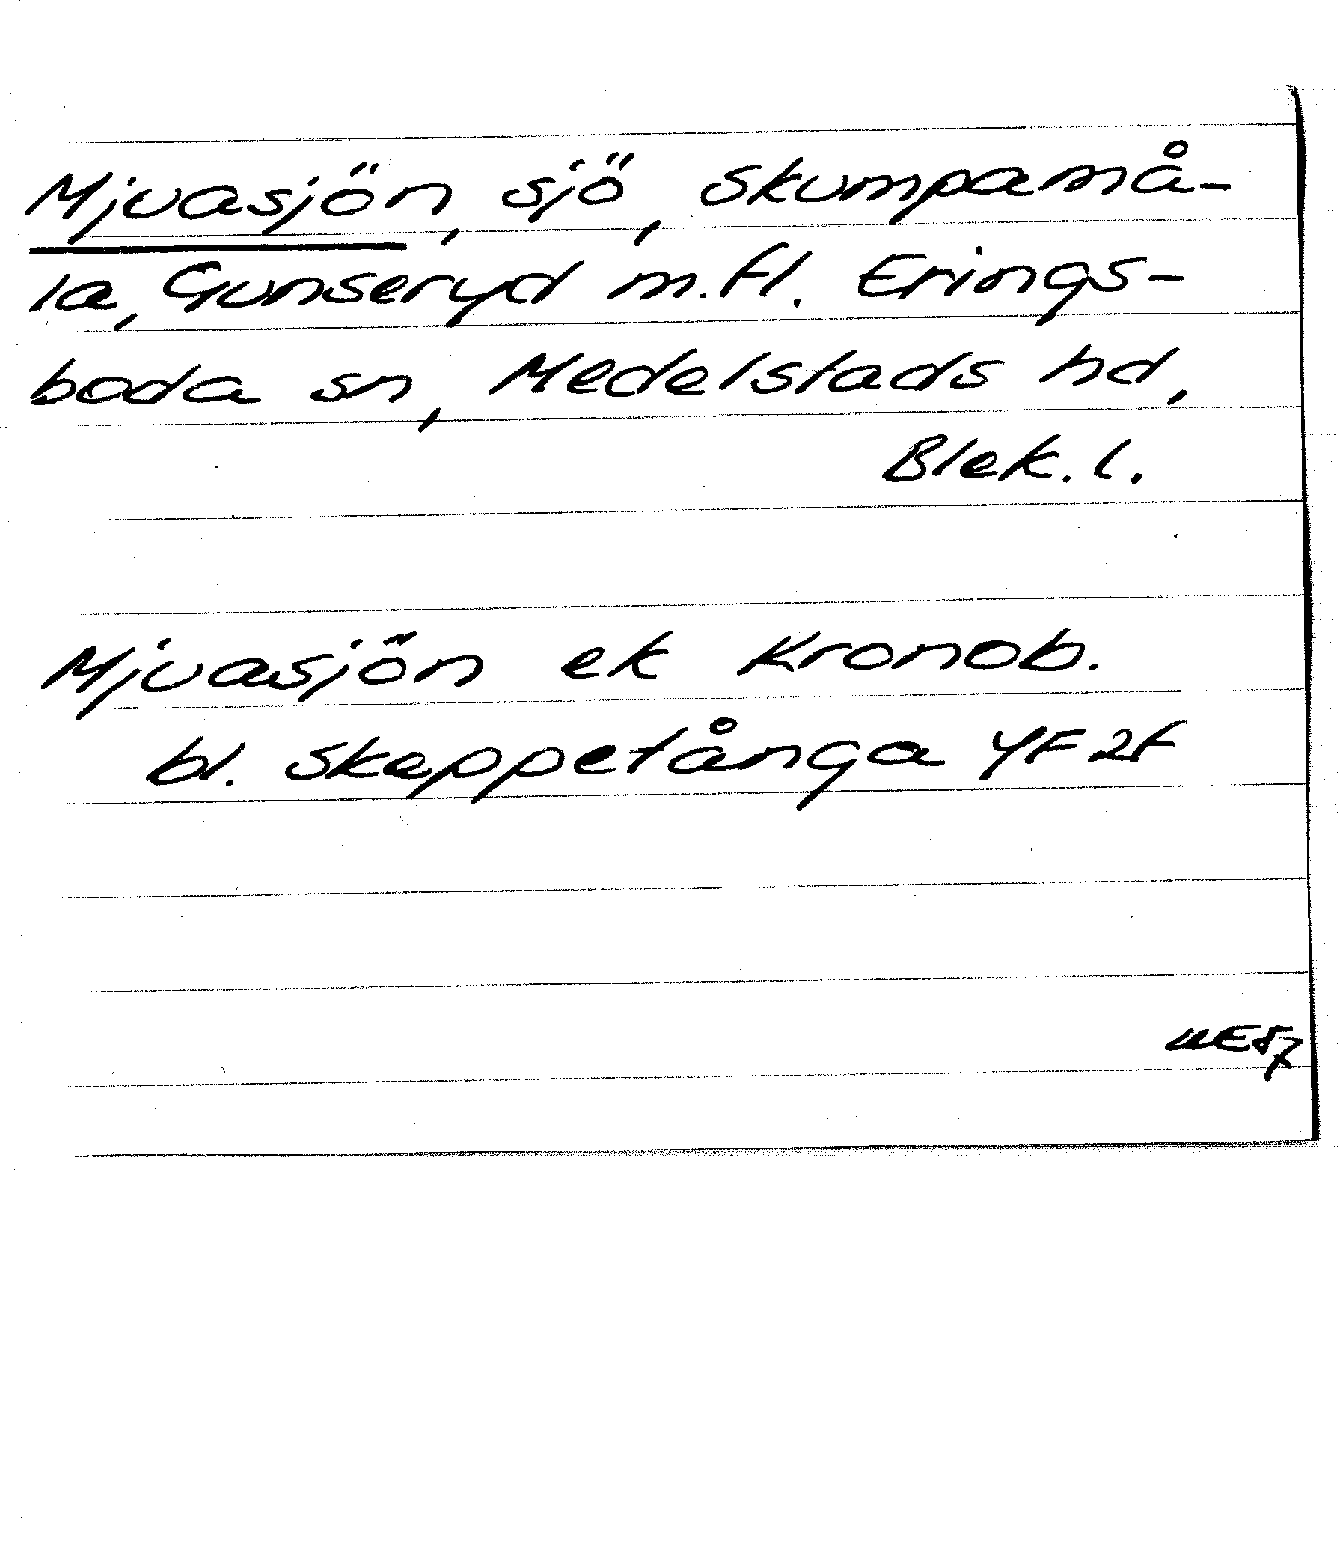 Mjuasjön, sjö, Skumpamå-
la, Gunseryd m.fl. Erings-
boda sn, Medelstads hd,
Blek.l.
Mjuasjön ek Kronob.
bl. Skeppetånga 4F2f